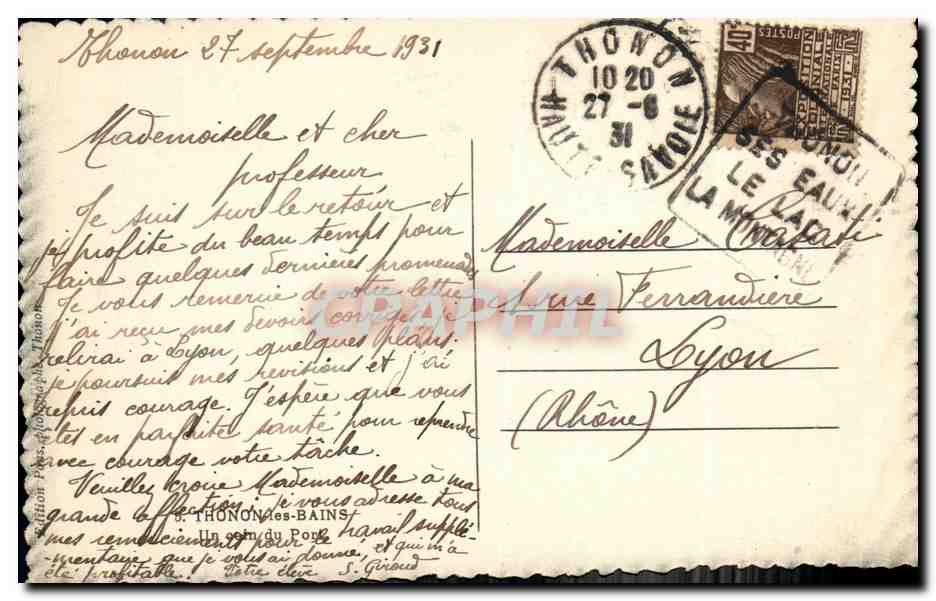 Thonon 27 septembre 1931
Mademoiselle et cher
professeur
Je suis sur le retour et
je profite du beau temps pour
faire quelques dernières promenades
Je vous remercie de votre lettre
j'ai reçu mes devoirs corrigés je
relirai à Lyon, quelques plans.
je poursuit mes revisions et j'ai
repris courage. J'espère que vous
êtes en parfaite santé pour reprendre
avec courage votre tâche.
Veuillez croire Mademoiselle à ma
grande affection; je vous adresse tous
mes remerciements pour le travail supplé-
-mentaire que je vous ai donné, et qui m'a
été profitable! Votre élève S. Giroud
5. THONON-les-BAINS
Un coin du Port
Edition Photographe, Thonon
THONON
10 20
27 -9
31
HAUTE SAVOIE
40c
POSTES
EXPOSITION
COLONIALE
INTERNATIONALE
PARIS 1931
THONON
SES EAUX
LE LAC
LA MONTAGNE
Mademoiselle
1 rue Ferrandière
Lyon
(Rhône)
CPAPHIL